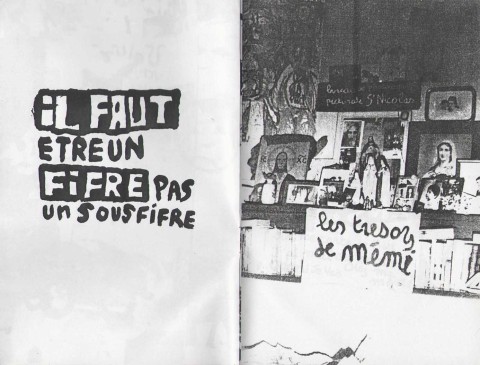 iL FAUT
ETRE UN
FiFRE PAS
un sousfifre
St Nicolas
les tresors
de mémé